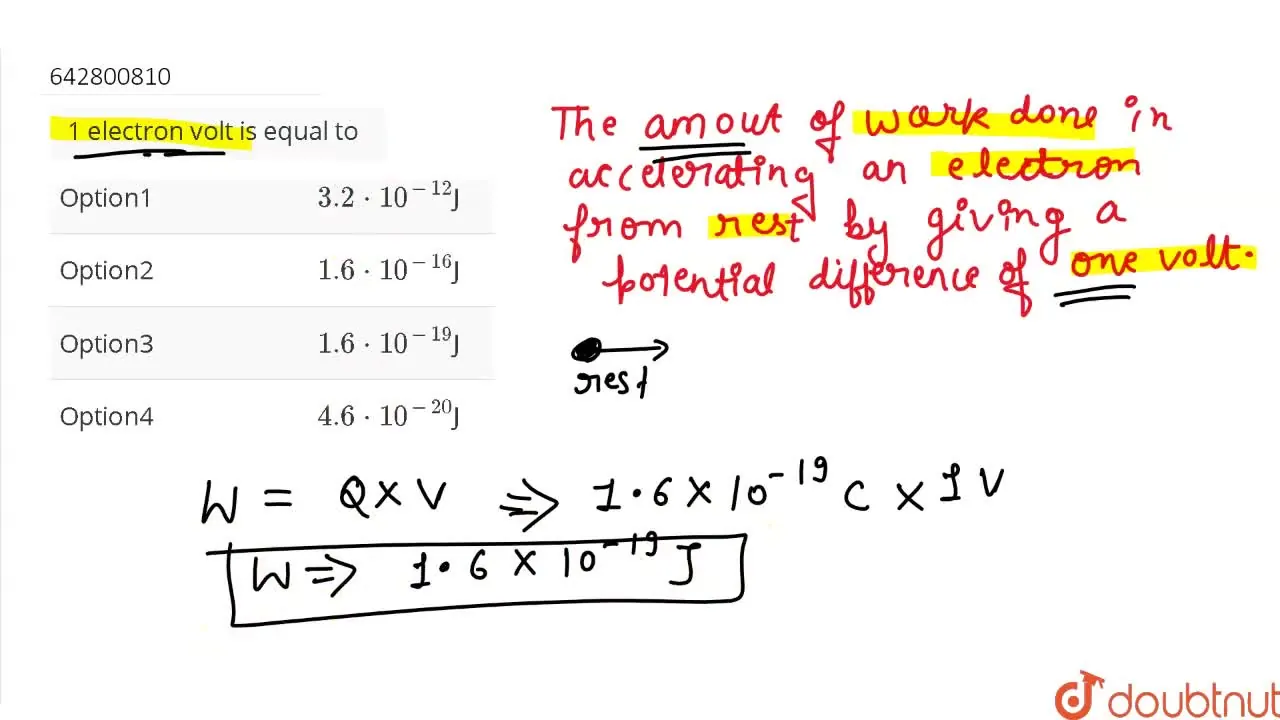 642800810
1 electron volt is equal to
Option1 3.2 · 10⁻¹²J
Option2 1.6 · 10⁻¹⁶J
Option3 1.6 · 10⁻¹⁹J
Option4 4.6 · 10⁻²⁰J
The amout of work done in
accelerating an electron
from rest by giving a
potential difference of one volt.
rest
W = Q X V ⇒ 1.6 X 10⁻¹⁹ C X 1 V
W ⇒ 1.6 X 10⁻¹⁹ J
doubtnut